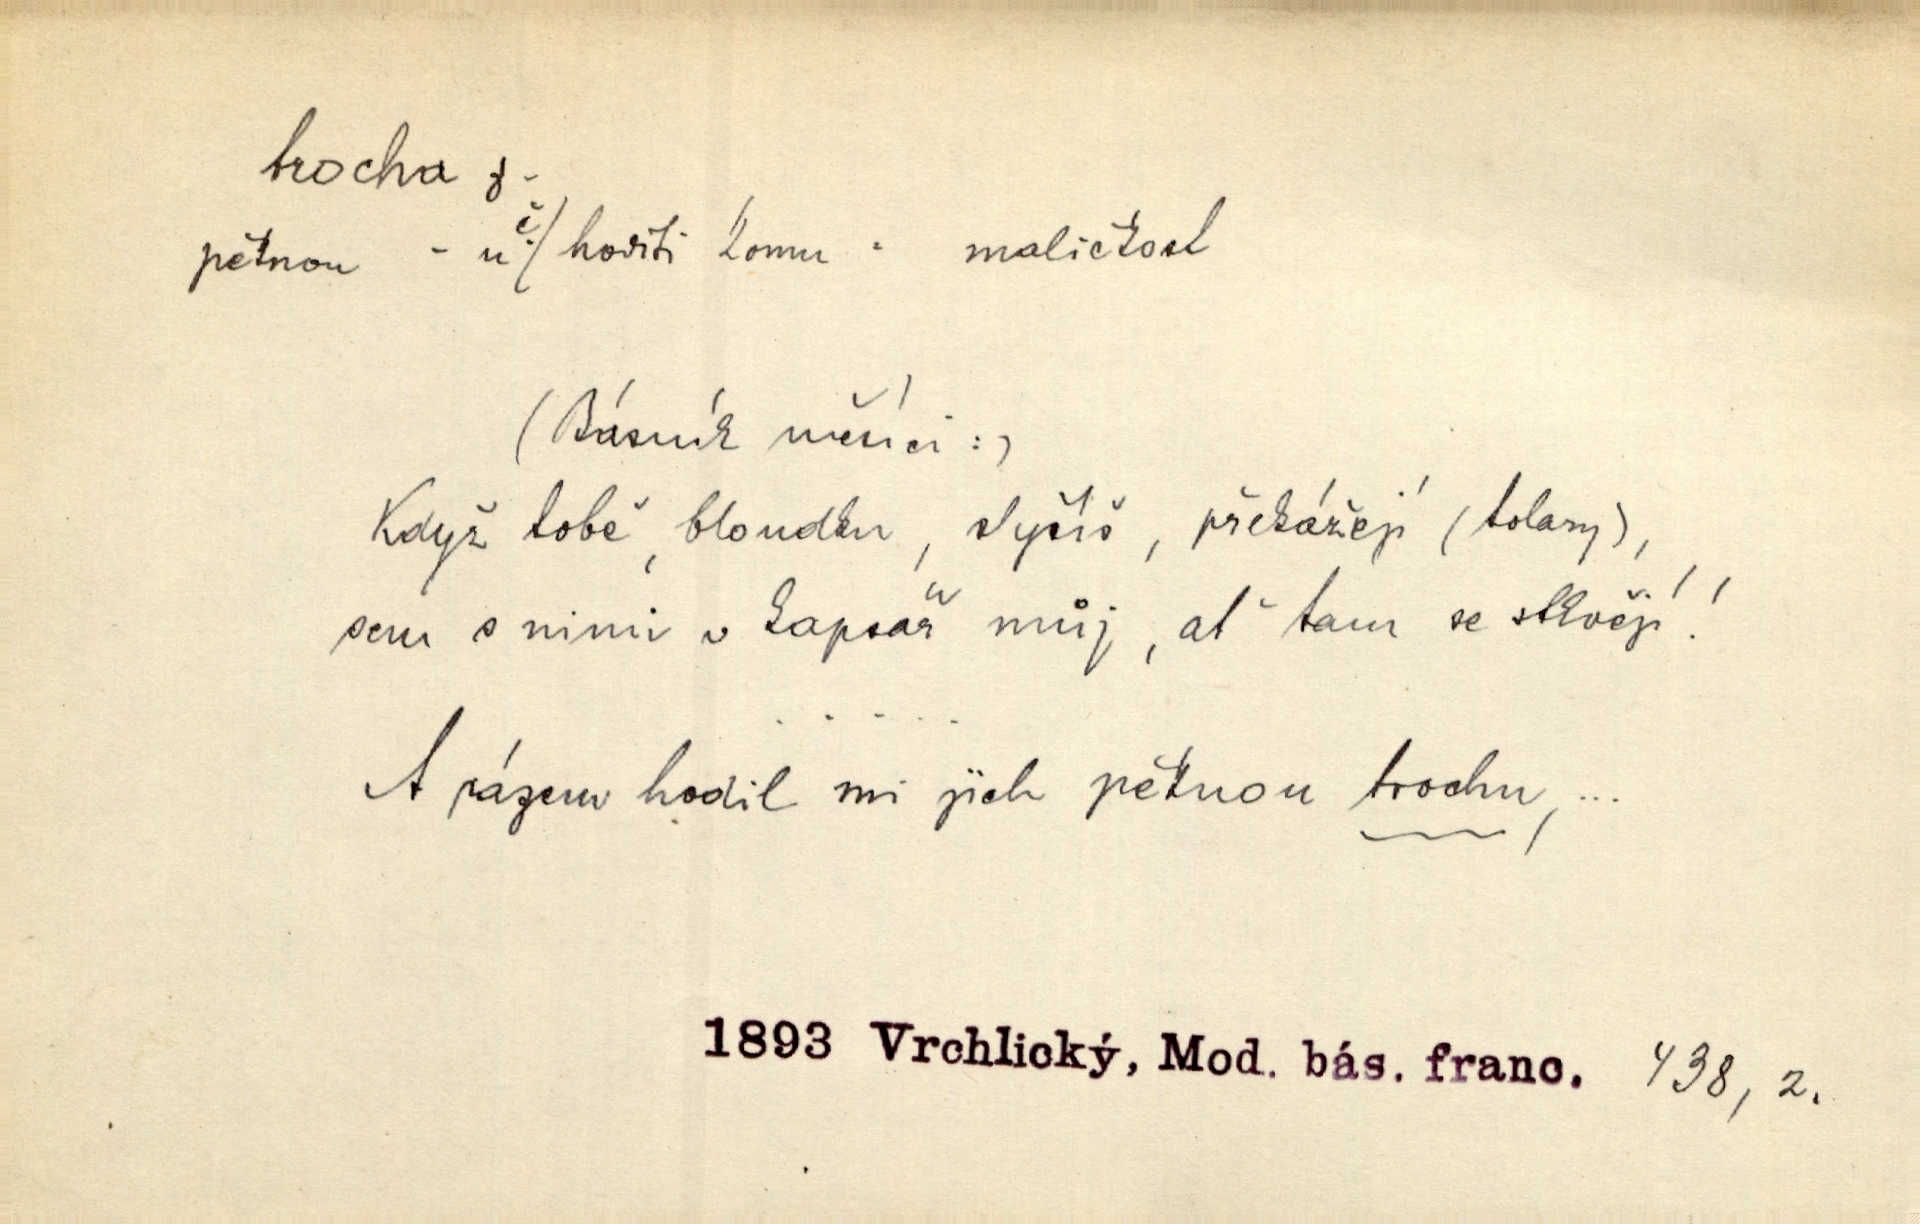 trocha ž.
pěknou - u hoditi komu = maličkost
(Básník měšíci:)
Když tobě, bloudku, slyšíš, překážejí (tolary),
sem s nimi v kapsář můj, ať tam se skvějí!
. . . . .
A rázem hodil mi jich pěknou trochu, ...
1893 Vrchlický, Mod. bás. franc. 438, 2.